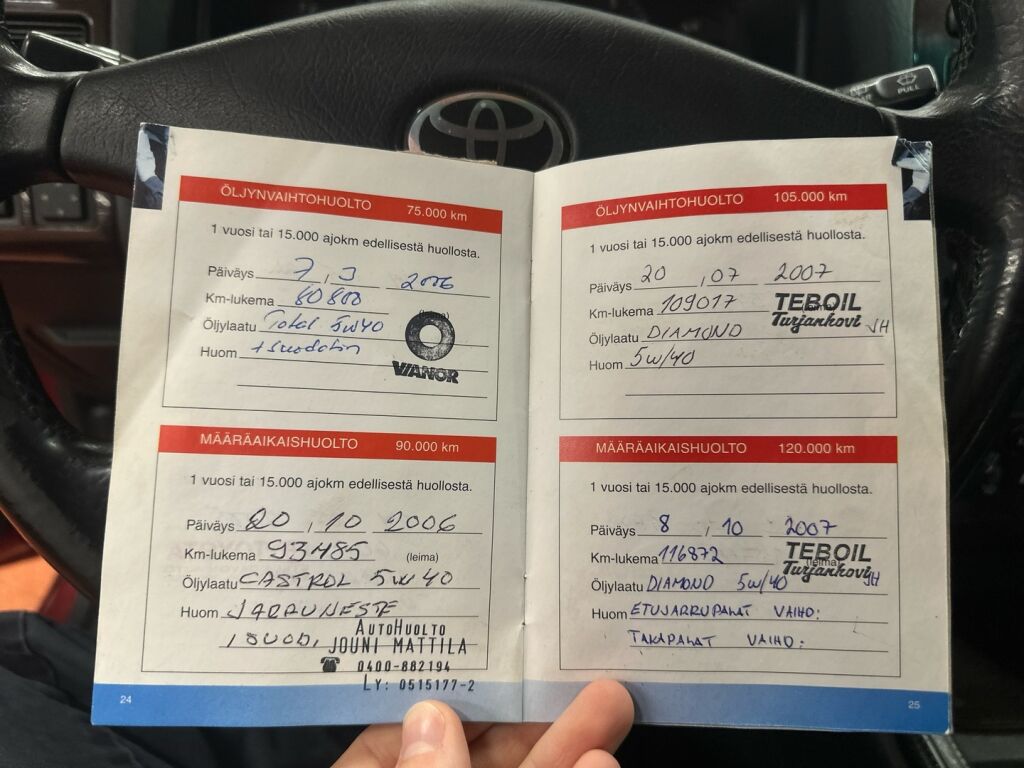 PULL
ÖLJYNVAIHTOHUOLTO 75.000 km
1 vuosi tai 15.000 ajokm edellisestä huollosta.
Päiväys 7 , 3 2006
Km-lukema 80800
Öljylaatu Total 5w40
Huom + suodatin
VIANOR
MÄÄRÄAIKAISHUOLTO 90.000 km
1 vuosi tai 15.000 ajokm edellisestä huollosta.
Päiväys 20 , 10 2006
Km-lukema 93485 (leima)
Öljylaatu CASTROL 5W40
Huom JARRUNESTE
ISUOD,
AUTOHUOLTO
JOUNI MATTILA
0400-882194
LY: 0515177-2
24
ÖLJYNVAIHTOHUOLTO 105.000 km
1 vuosi tai 15.000 ajokm edellisestä huollosta.
Päiväys 20 , 07 2007
Km-lukema 109017 TEBOIL
Turjankovi
Öljylaatu DIAMOND JH
Huom 5W/40
MÄÄRÄAIKAISHUOLTO 120.000 km
1 vuosi tai 15.000 ajokm edellisestä huollosta.
Päiväys 8 , 10 2007
Km-lukema 116872 TEBOIL
(leima)
Turjankovi
Öljylaatu DIAMOND 5W/40 JH
Huom ETUJARRUPALAT VAIHD:
TAKAPALAT VAIHD:
25